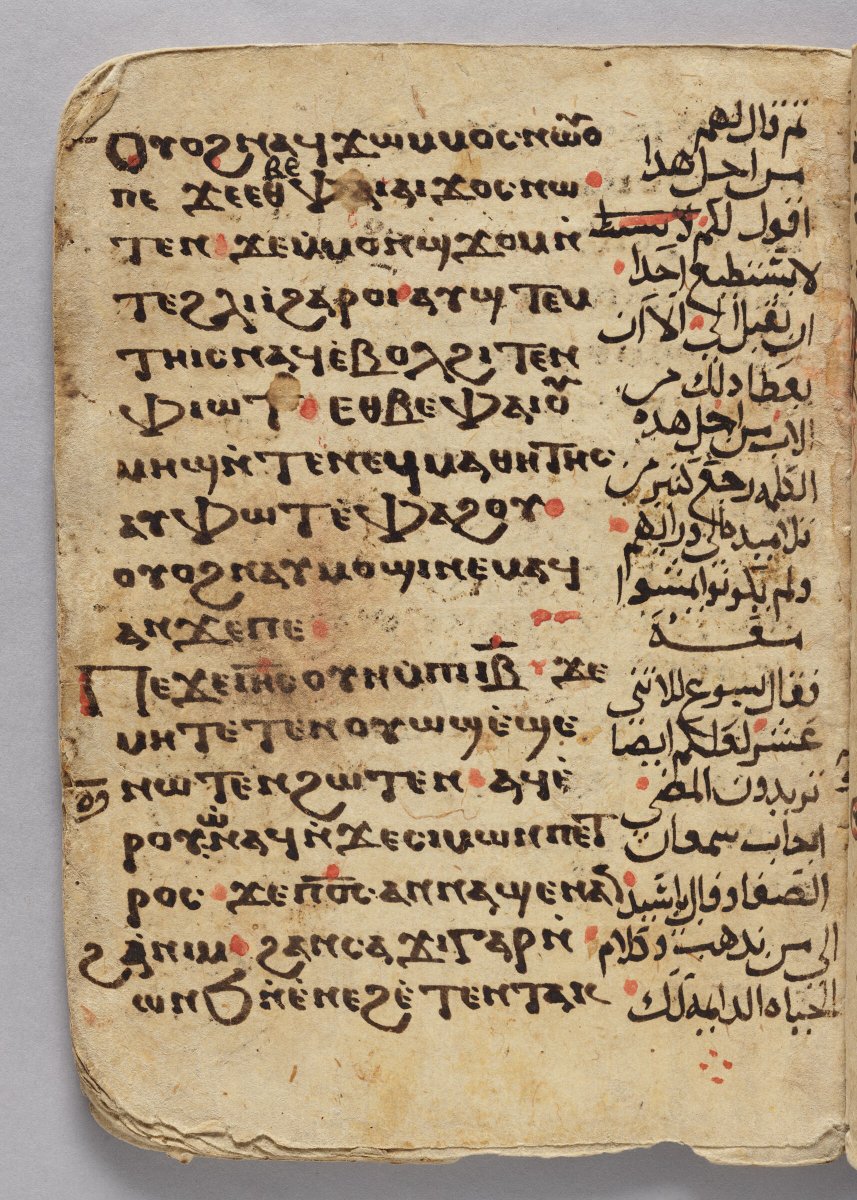 ⲟⲩⲟϩ ⲛⲁϥϫⲱ ⲙⲙⲟⲥ ⲛⲱⲟⲩ
ⲡⲉ ϫⲉ ⲉⲑⲃⲉ ⲫⲁⲓ ⲁⲓϫⲟⲥ ⲛⲱ
ⲧⲉⲛ ϫⲉ ⲙ̀ⲙⲟⲛ ϣϫⲟⲙ ⲛ̀
ⲧⲉ ϩⲗⲓ ⲓ̀ ϩⲁⲣⲟⲓ ⲁⲩϣⲧⲉⲙ
ⲧⲏⲓⲥ ⲛⲁϥ ⲉ̀ⲃⲟⲗ ϩⲓⲧⲉⲛ
ⲫⲓⲱⲧ ⲉⲑⲃⲉ ⲫⲁⲓ ⲟⲩ
ⲙⲏϣ ⲛ̀ⲧⲉ ⲛⲉϥⲙⲁⲑⲏⲧⲏⲥ
ⲁⲩⲫⲱⲧ ⲉ̀ⲫⲁϩⲟⲩ
ⲟⲩⲟϩ ⲛⲁⲩⲙⲟϣⲓ ⲛⲉⲙⲁϥ
ⲁⲛ ϫⲉ ⲡⲉ
ⲡⲉϫⲉ ⲓⲏⲥⲟⲩⲛ ⲙ̀ⲡⲓⲓⲃ̅ ϫⲉ
ⲙⲏ ⲧⲉⲧⲉⲛⲟⲩⲱϣ ⲉ̀ϣⲉ
ⲛⲱⲧⲉⲛ ϩⲱⲧⲉⲛ ⲁϥⲉ̀
ⲣⲟⲩⲱ̀ ⲛⲁϥ ⲛ̀ϫⲉ ⲥⲓⲙⲱⲛ ⲡⲉⲧ
ⲣⲟⲥ ϫⲉ ⲡ̅ⲟ̅ⲥ̅ ⲁⲛⲛⲁϣⲉ ⲛⲁⲛ
ϩⲁ ⲛⲓⲙ ϩⲁⲛⲥⲁϫⲓ ⲅⲁⲣ ⲛ̀
ⲱⲛϧ ⲛ̀ⲉⲛⲉϩ ⲉ̀ⲧⲉⲛⲧⲁⲕ
ثم قال لهم
من اجل هدا
اقول لكم
لا يستطيع احدا
ان يقبل الي الا ان
يعطا دلك من
الاب من اجل هده
الكلمه رجع كتير من
تلاميده الى ورايهم
ولم يكونوا يمشوا
معه
فقال يسوع للاتنى
عشر لعلكم ايضا
تريدون المضي
اجاب سمعان
الصفا وقال يا سيد
الى من ندهب وكلام
الحياه الدايمه لك